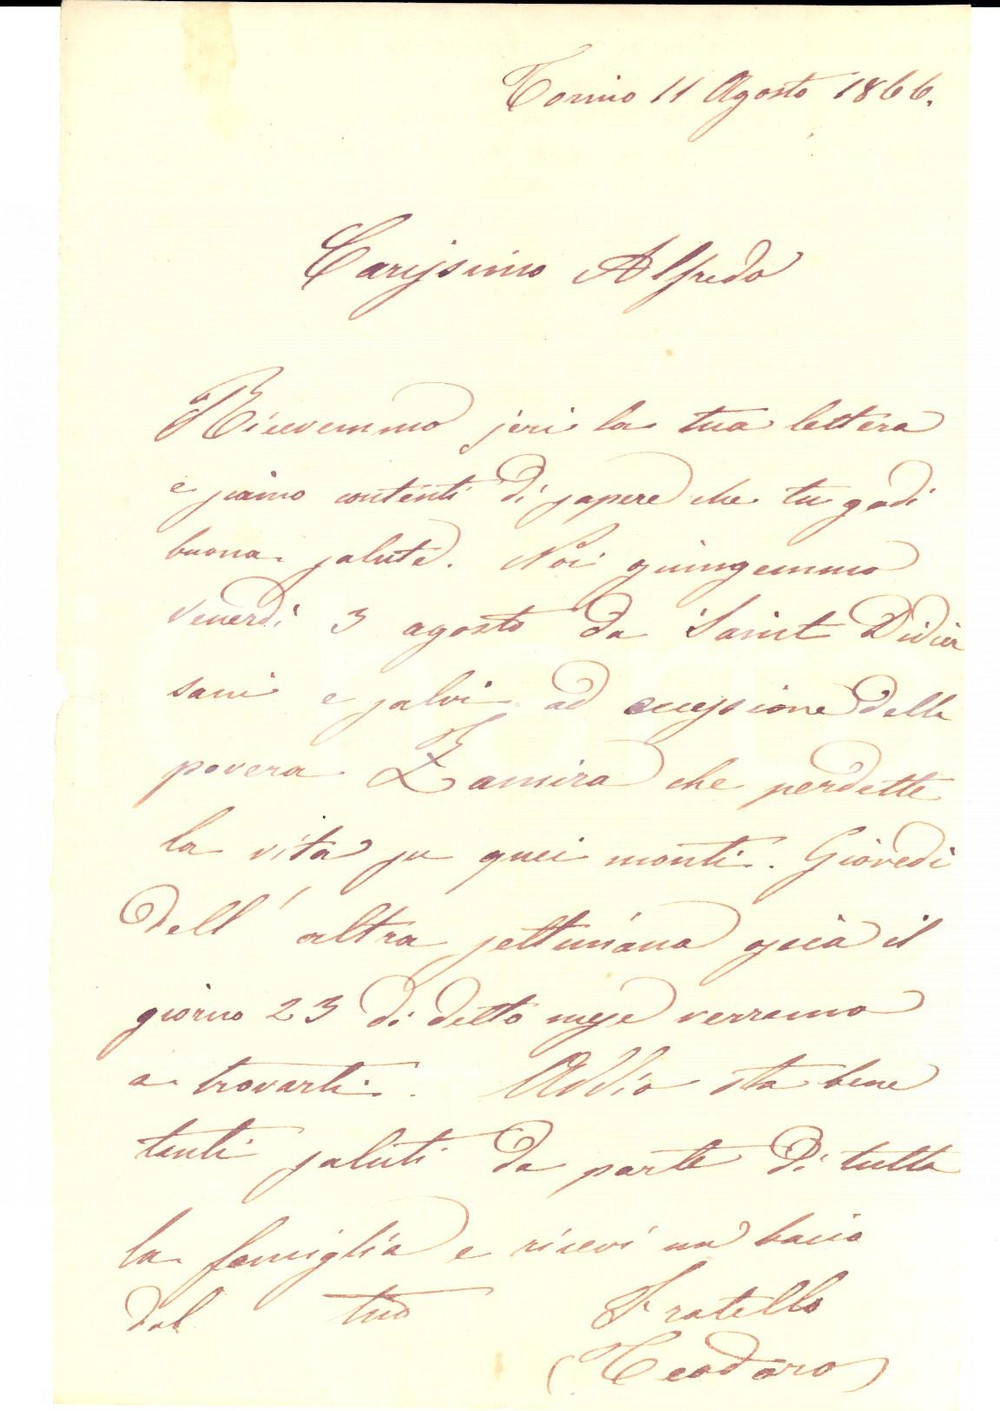 Torino 11 Agosto 1866.
Carissimo Alfredo
Ricevemmo jeri la tua lettera
e siamo contenti di sapere che tu godi
buona salute. Noi giungemmo
Venerdì 3 agosto da Saint Didier
sani e salvi ad eccessione della
povera Zamira che perdette
la vita su quei monti. Giovedì
dell'altra settimana ossia il
giorno 23 di detto mese verremo
a trovarti. Addio sta bene
tanti saluti da parte di tutta
la famiglia e ricevi un bacio
dal tuo Fratello
(Teodoro)